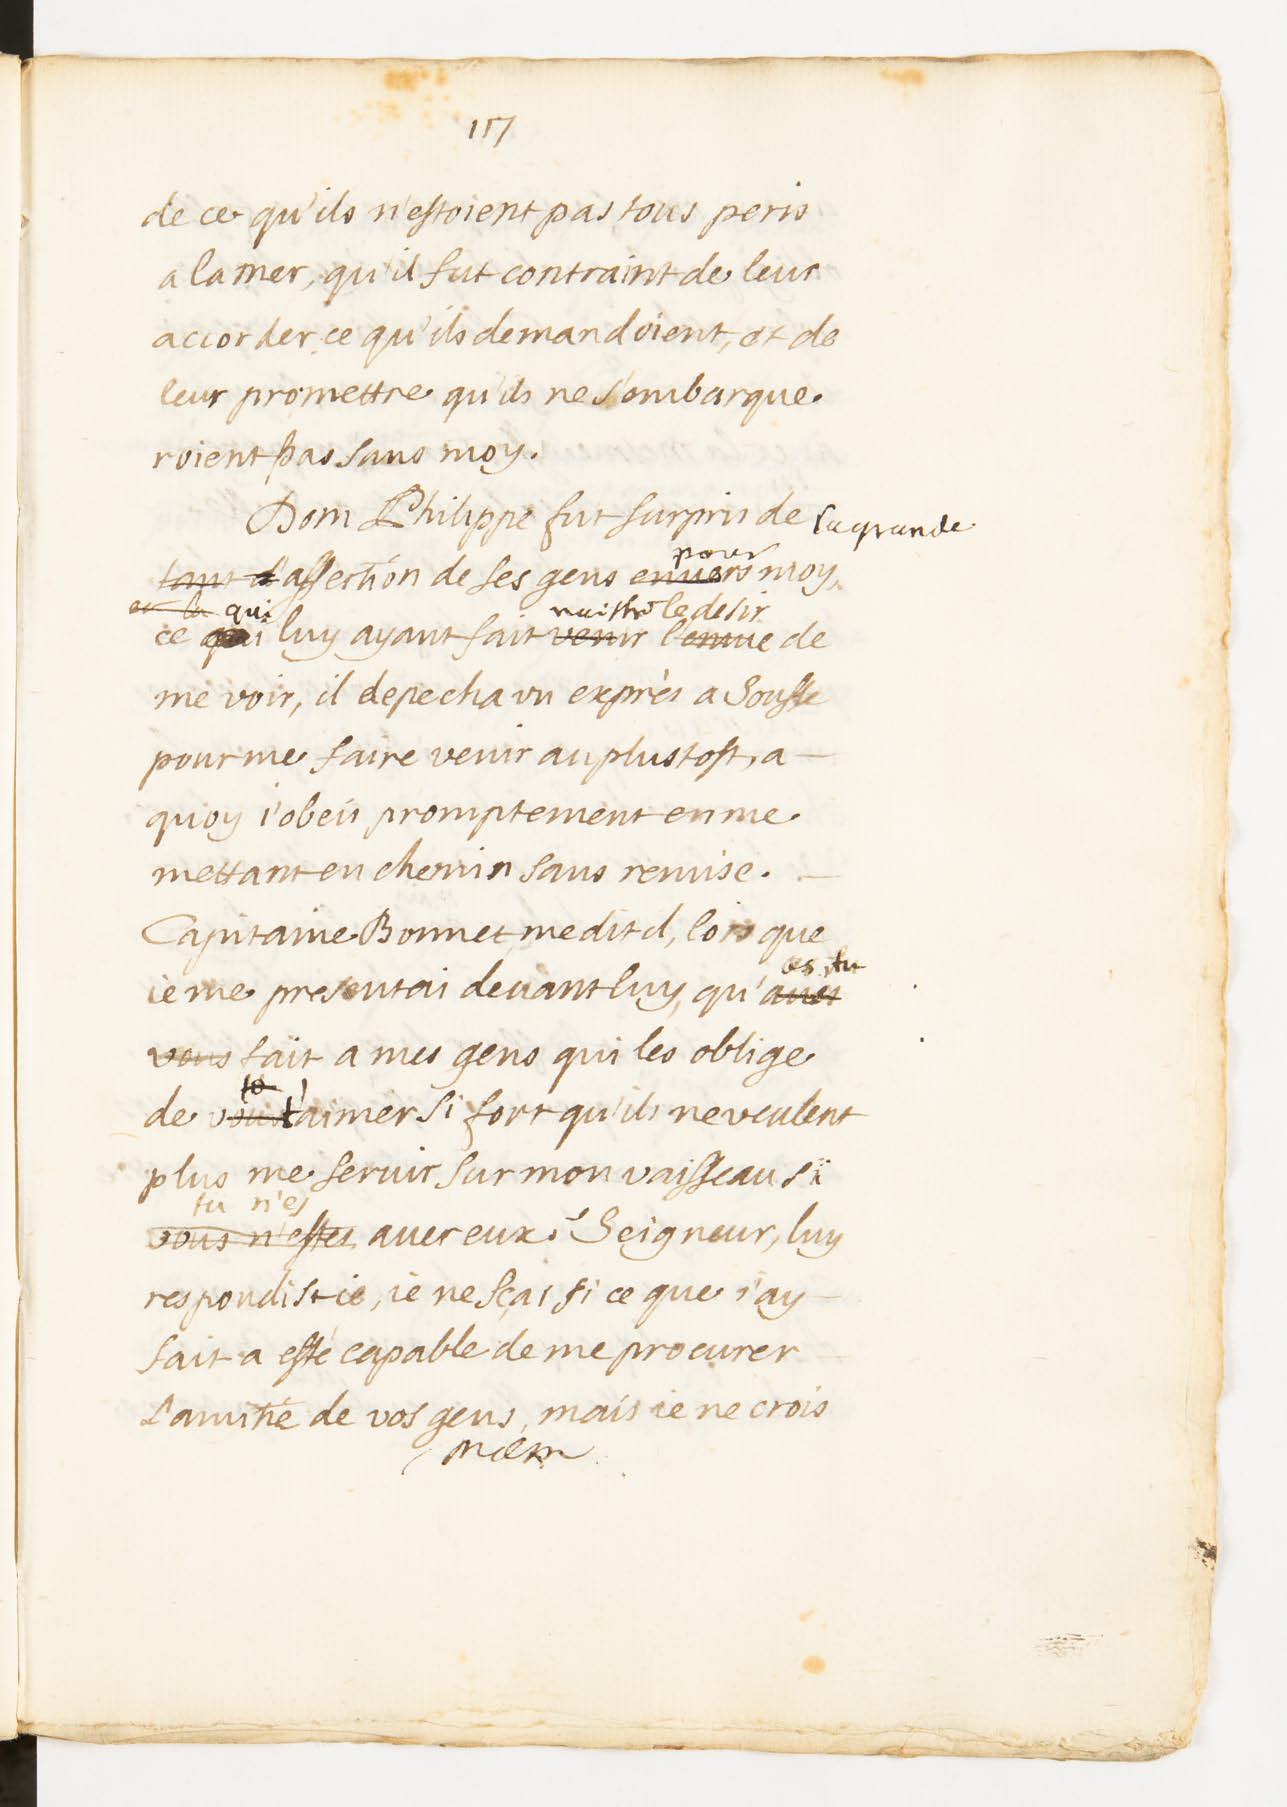 117
de ce qu'ils n'estoient pas tous peris
a la mer, qu'il fut contraint de leur
accorder ce qu'ils demandoient, et de
leur promettre qu'ils ne s'embarque
roient pas sans moy.
Dom Philippe fut surpris de la grande
pour
tant d'affection de ses gens envers moy,
et la qui naistre le desir
ce qui luy ayant fait venir l'envie de
me voir, il depecha vn exprès a Sousse
pour me faire venir au plustost, a
quoy i'obeis promptement en me
mettant en chemin sans remise.
Capitaine Bonnet, me dit il, lors que
as tu
ie me presentai deuant luy, qu'auez
vous fait a mes gens qui les oblige
te
de vous t'aimer si fort qu'ils ne veulent
plus me seruir sur mon vaisseau si
tu n'es
vous n'estes auec eux? Seigneur, luy
respondist ie, ie ne sçai si ce que i'ay
fait a esté capable de me procurer
L'amitié de vos gens, mais ie ne crois